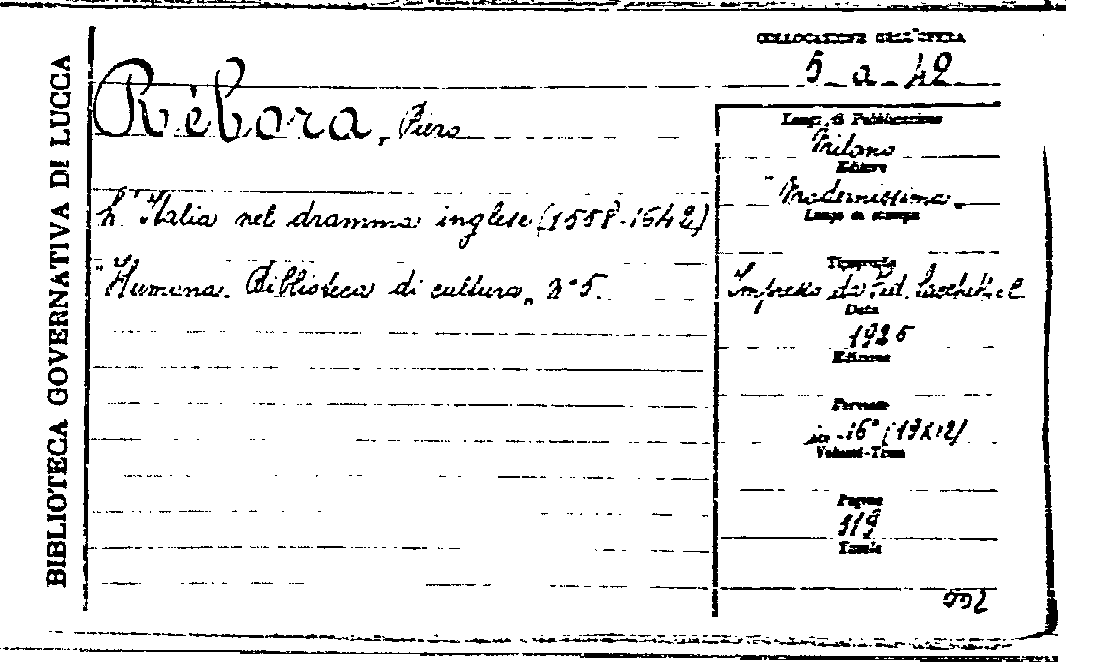 BIBLIOTECA GOVERNATIVA DI LUCCA
COLLOCAZIONE DELL'OPERA
5_a_42
Rèbora, Piero
L'Italia nel dramma inglese (1558-1642)
"Humana. Biblioteca di cultura„ n° 5.
Luogo di Pubblicazione
Milano
Editore
"Modernissima„
Luogo di stampa
Tipografia
Impresso da Fed. Sacchetti e C.
Data
1925
Edizione
Formato
in-16° (19x12)
Volumi-Tomi
Pagine
Tavole